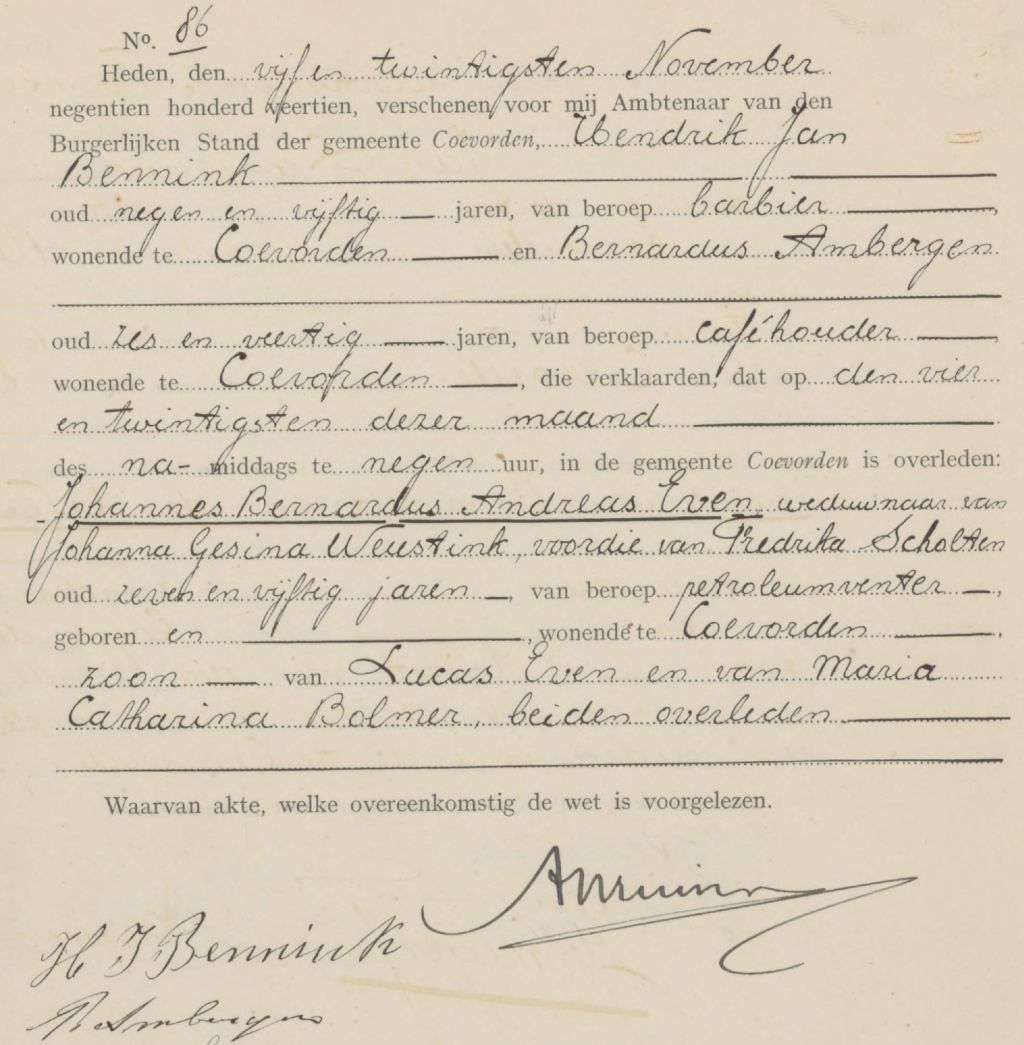 No. 86
Heden, den vijf en twintigsten November
negentien honderd veertien, verschenen voor mij Ambtenaar van den
Burgerlijken Stand der gemeente Coevorden, Hendrik Jan
Bennink
oud negen en vijftig jaren, van beroep barbier,
wonende te Coevorden en Bernardus Ambergen
oud zes en veertig jaren, van beroep caféhouder,
wonende te Coevorden, die verklaarden, dat op den vier
en twintigsten dezer maand
des na-middags te negen uur, in de gemeente Coevorden is overleden:
Johannes Bernardus Andreas Even, weduwnaar van
Johanna Gesina Weustink, voordie van Fredrika Scholten
oud zeven en vijftig jaren, van beroep petroleumventer,
geboren en, wonende te Coevorden,
zoon van Lucas Even en van Maria
Catharina Bolmer, beiden overleden
Waarvan akte, welke overeenkomstig de wet is voorgelezen.
H J Bennink
B Ambergen